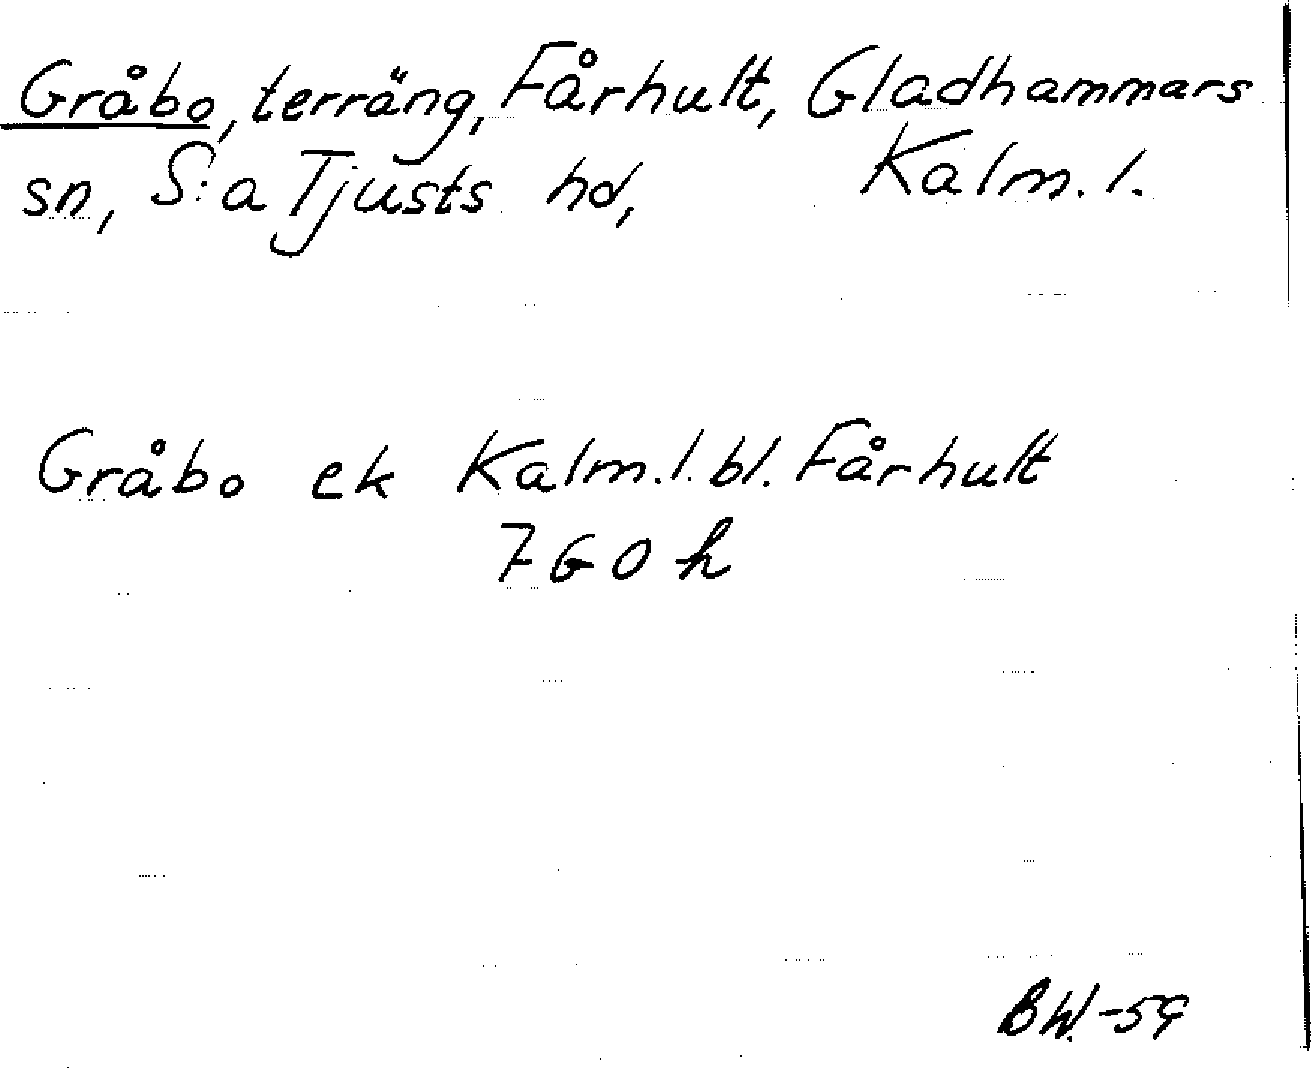 Gråbo, terräng, Fårhult, Gladhammars
sn, S:a Tjusts hd, Kalm. l.
Gråbo ek Kalm. l. bl. Fårhult
7 G 0 h
BW.-59